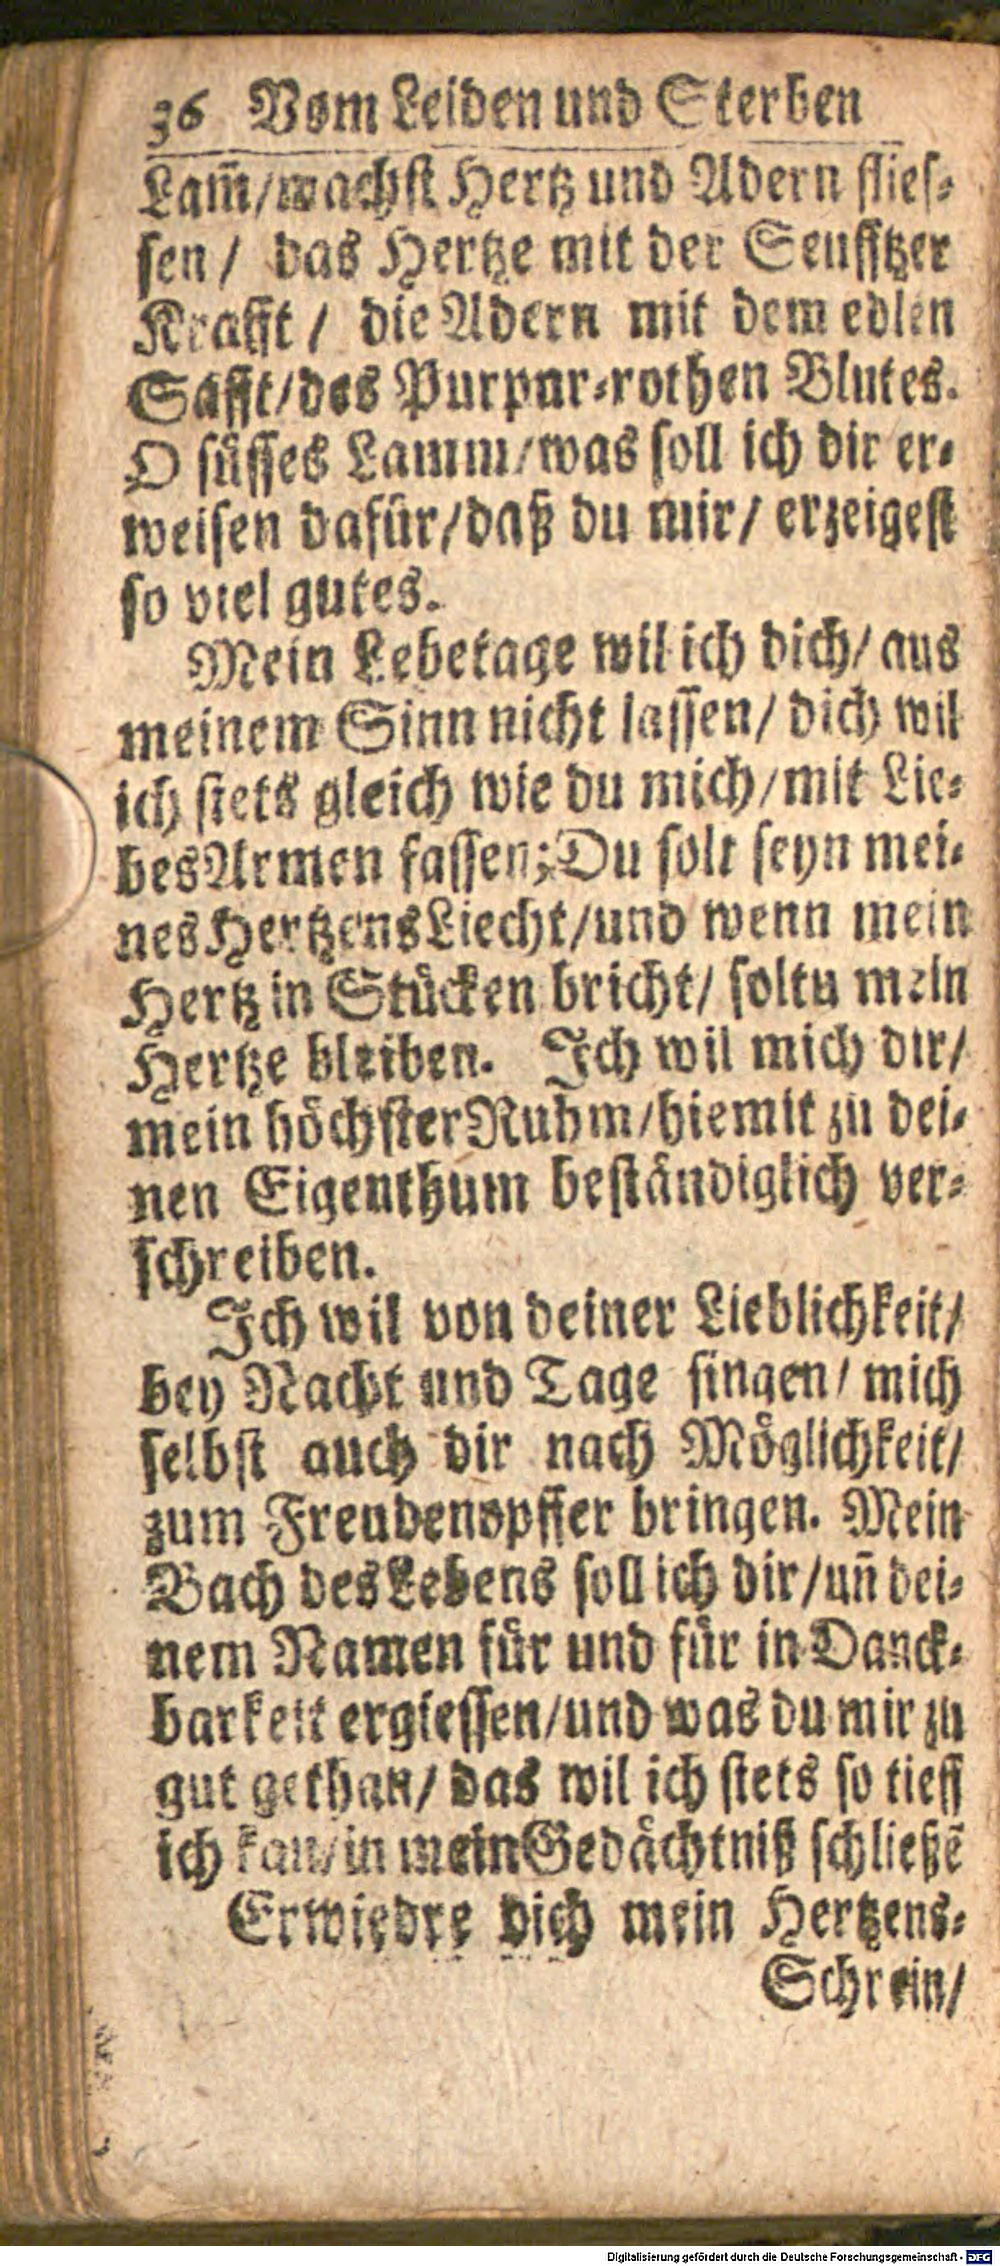 36 Vom Leiden und Sterben
Lam̃/wachst Hertz und Adern flies-
sen / das Hertze mit der Seufftzer
Krafft / die Adern mit dem edlen
Säfft/des Purpur-rothen Blutes.
O süsses Lamm/was soll ich dir er-
weisen dafür/daß du mir/ erzeigest
so viel gutes.
Mein Lebetage wil ich dich/ aus
meinem Sinn nicht lassen/ dich wil
ich stets gleich wie du mich/mit Lie-
bes Armen fassen; Du solt seyn mei-
nes Hertzens Liecht/und wenn mein
Hertz in Stücken bricht/ soltu mein
Hertze bleiben. Ich wil mich dir/
mein höchster Ruhm/hiemit zu dei-
nen Eigenthum beständiglich ver-
schreiben.
Ich wil von deiner Lieblichkeit/
bey Nacht und Tage singen/ mich
selbst auch dir nach Möglichkeit/
zum Freudenopffer bringen. Mein
Bach des Lebens soll ich dir/un̄ dei-
nem Namen für und für in Danck-
barkeit ergiessen/und was du mir zu
gut gethan/ das wil ich stets so tieff
ich kan/in mein Gedächtniß schließē
Erwiedre dich mein Hertzens-
Schrein/
Digitalisierung gefördert durch die Deutsche Forschungsgemeinschaft - DFG